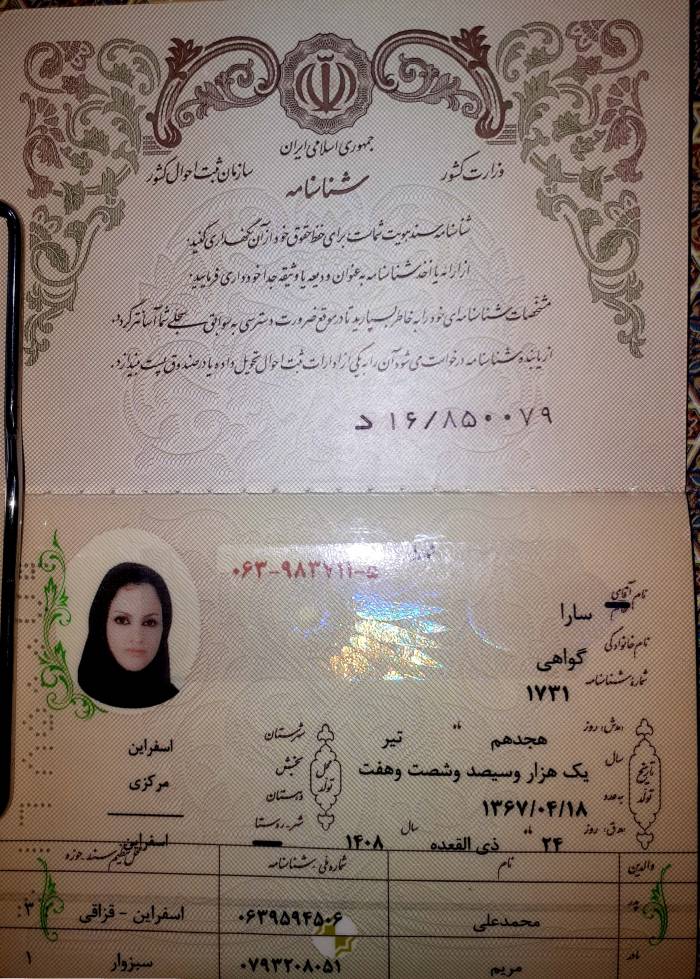 جمهوری اسلامی ایران
وزارت کشور
سازمان ثبت احوال کشور
شناسنامه
شناسنامه سند هویت شماست برای حفظ حقوق خود از آن نگهداری کنید.
از ارائه یا اخذ شناسنامه به عنوان ودیعه یا وثیقه جداً خودداری فرمایید.
مشخصات شناسنامه‌ای خود را به خاطر بسپارید تا در موقع ضرورت دسترسی به سوابق سجلی شما آسانتر گردد.
از یابنده شناسنامه درخواست می‌شود آن را به یکی از ادارات ثبت احوال تحویل داده یا در صندوق پست بیندازد.
د ۱۶/۸۵۰۰۷۹
۰۶۳-۹۸۳۷۱۱-۵
نام آقای
خانم سارا
نام خانوادگی گواهی
شماره شناسنامه ۱۷۳۱
تاریخ تولد
ه‍.ش: روز هجدهم ماه تیر
سال یک هزار وسیصد وشصت وهفت
به عدد ۱۳۶۷/۰۴/۱۸
ه‍.ق: روز ۲۴ ماه ذی القعده سال ۱۴۰۸
محل تولد
شهرستان اسفراین
بخش مرکزی
دهستان
شهر-روستا اسفراین
والدین نام شماره ملی-شناسنامه محل تنظیم سند حوزه
پدر محمدعلی ۰۶۳۹۵۹۴۵۰۶ اسفراین - قزاقی ۳:
مادر مریم ۰۷۹۳۲۰۸۰۵۱ سبزوار ۱